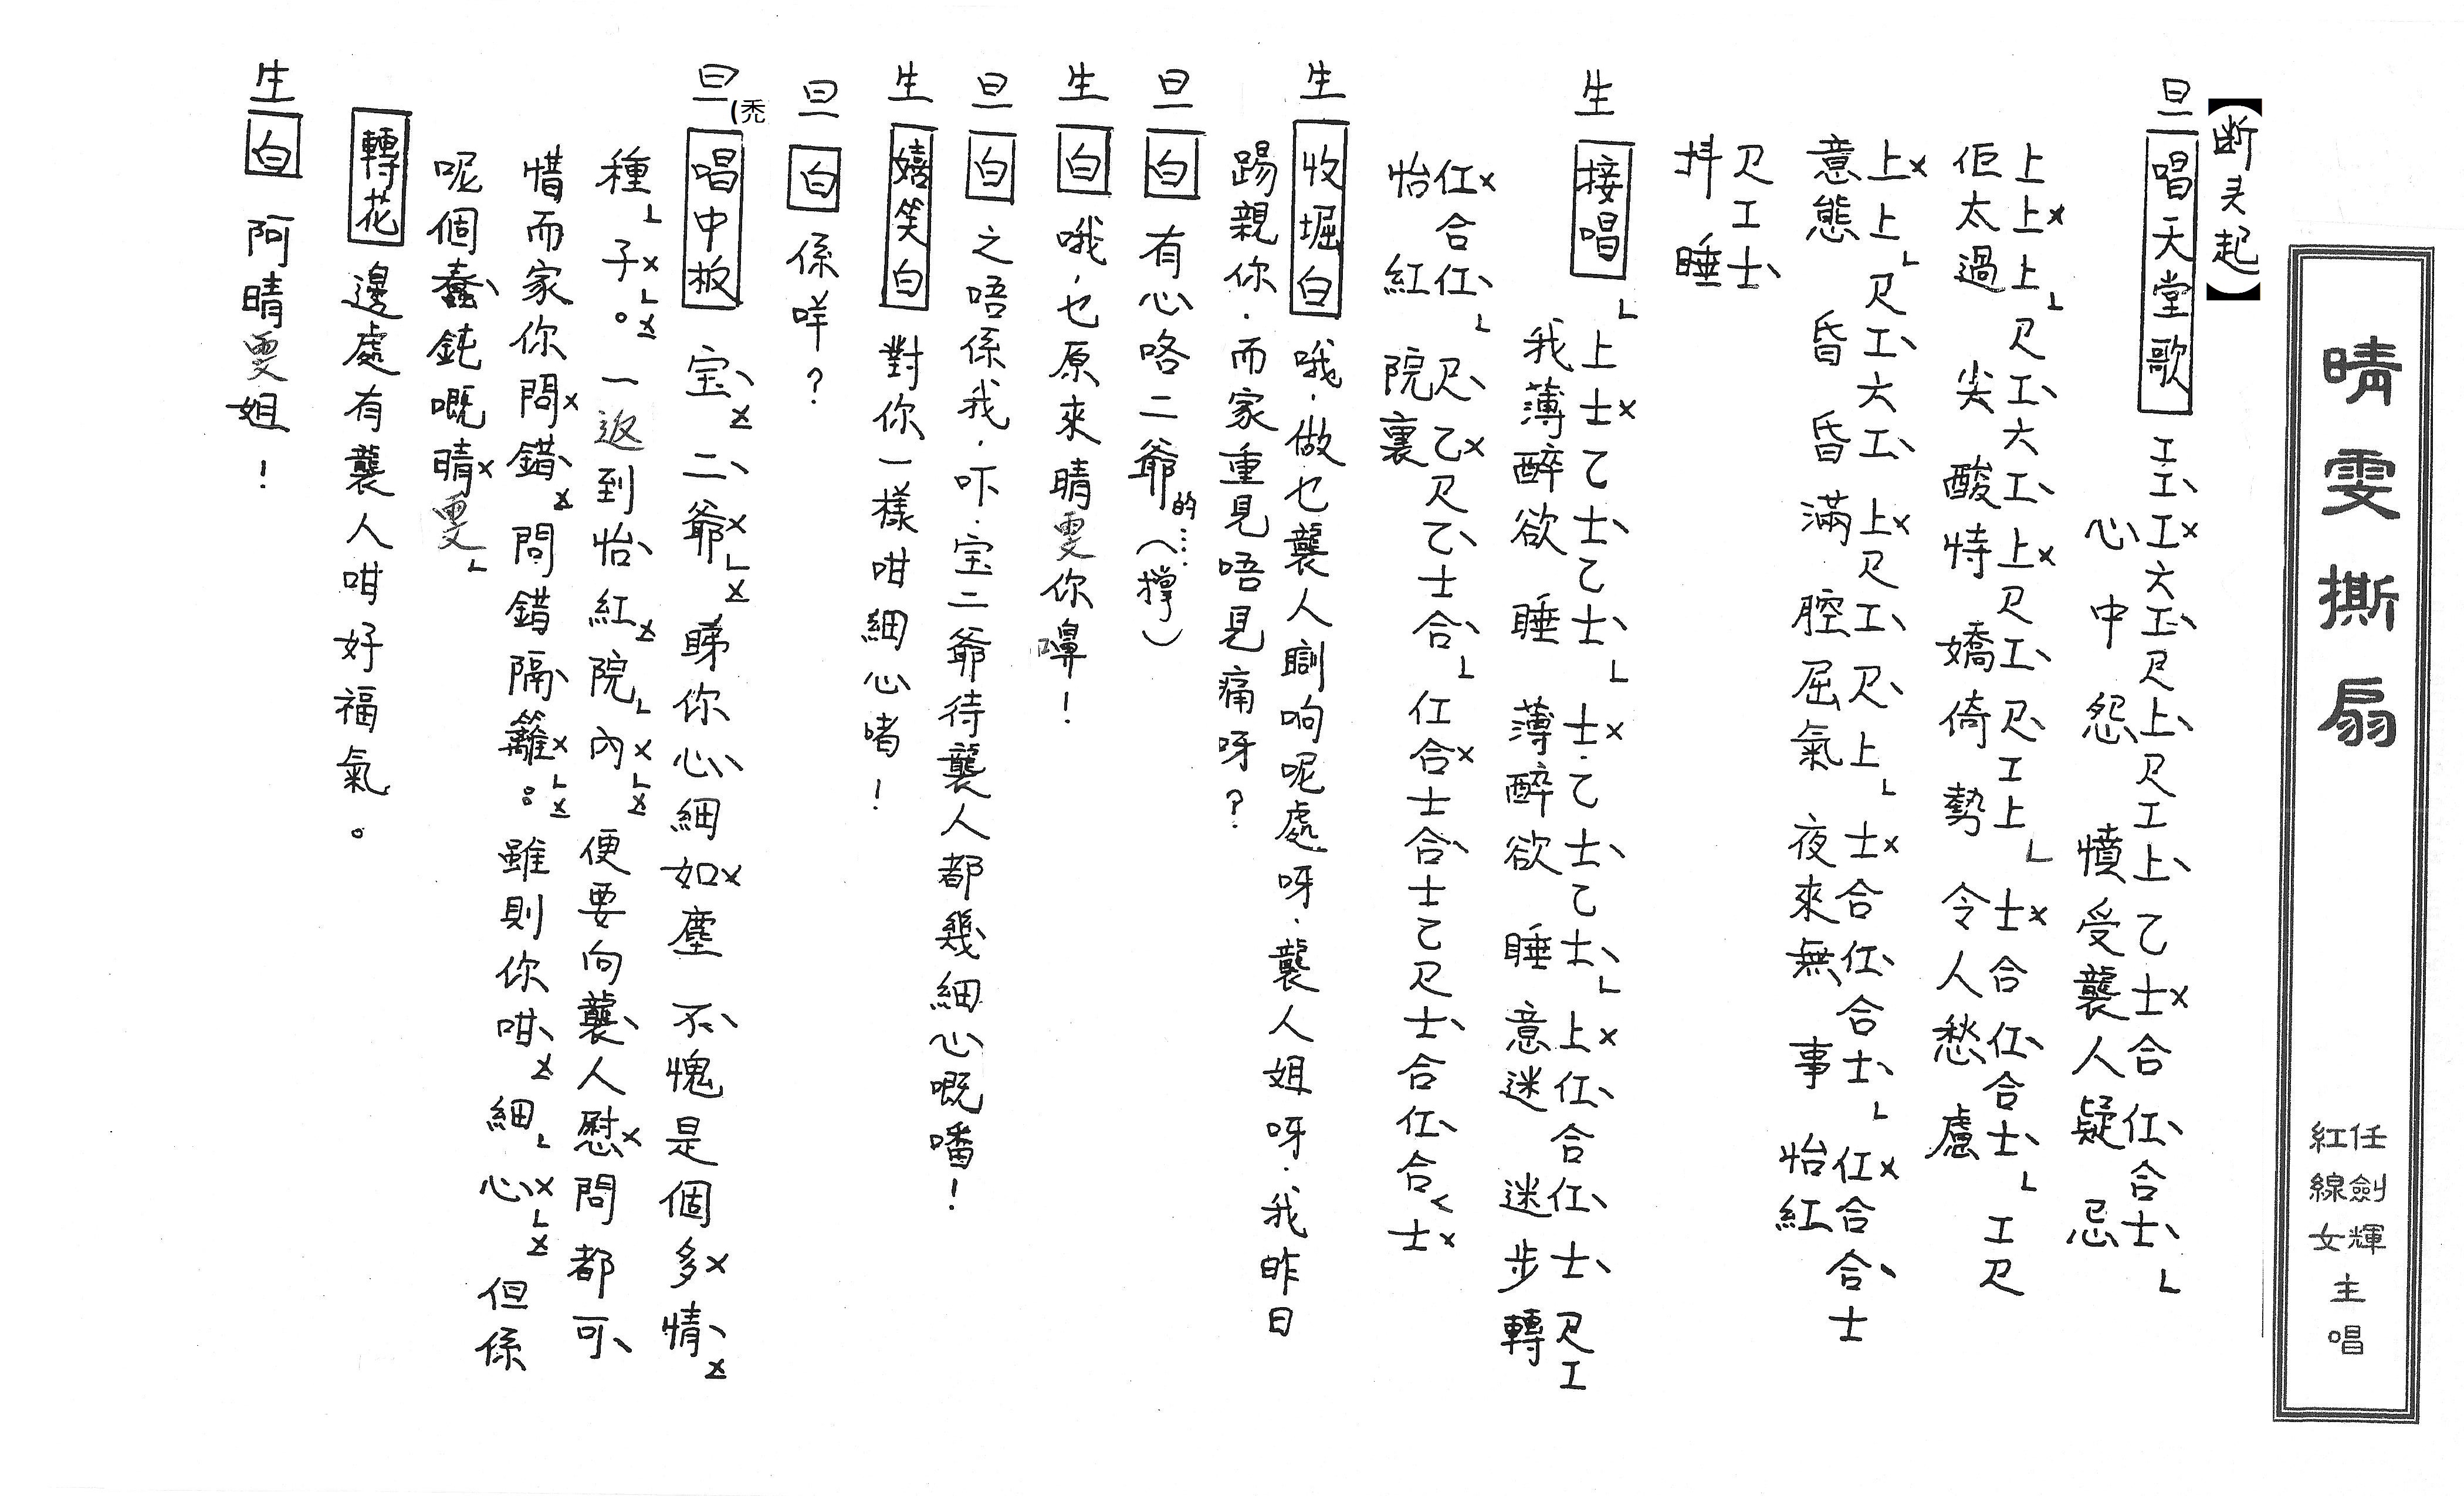 晴雯撕扇
任劍輝
紅線女
主唱
【断头起】
旦 唱天堂歌 工工工六工尺上尺工上乙士合仜合士
心中怨 憤受襲人疑忌
上上上尺工六工上尺工尺工上士合仜合士工尺
佢太過 尖酸恃嬌倚勢 令人愁慮
上上尺工六工上尺工尺上士合仜合士仜合合士
意態 昏昏滿腔屈氣 夜來無事 怡紅
尺工士
抖睡
生 接唱 上士乙士乙士士乙士乙士上仜合仜士尺工
我薄醉欲睡 薄醉欲睡 意迷迷步轉
仜合仜尺乙尺乙士合仜合士合士乙尺士合仜合士
怡紅院裏
生 收堀白 哦．做乜襲人瞓响呢處呀．襲人姐呀．我昨日
踢親你．而家重見唔見痛呀？
旦 白 有心咯二爺的….（撑）
生 白 哦．乜原來晴雯你嚊！
旦 白 之唔係我．吓．宝二爺待襲人都幾細心嘅噃！
生 嬉笑白 對你一樣咁細心啫！
旦 白 係咩？
旦(禿 唱中板 宝二爺 睇你心細如塵 不愧是個多情
種子。一返到怡紅院內 便要向襲人慰問都可
惜而家你問錯 問錯隔籬。雖則你咁細心 但係
呢個蠢鈍嘅晴雯
轉花 邊處有襲人咁好福氣。
生 白 阿晴雯姐！